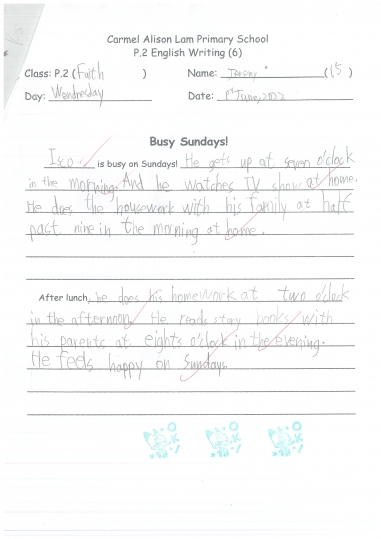 Carmel Alison Lam Primary School
P.2 English Writing (6)
Class: P.2 (Faith) Name: Jeremy (15)
Day: Wednesday Date: 1st June, 2022
Busy Sundays!
Isco is busy on Sundays! He gets up at seven o'clock
in the morning. And he watches TV show at home.
He does the housework with his family at half
past nine in the morning at home.
After lunch, he does his homework at two o'clock
in the afternoon. He reads story books with
his parents at eights o'clock in the evening.
He feels happy on Sundays.